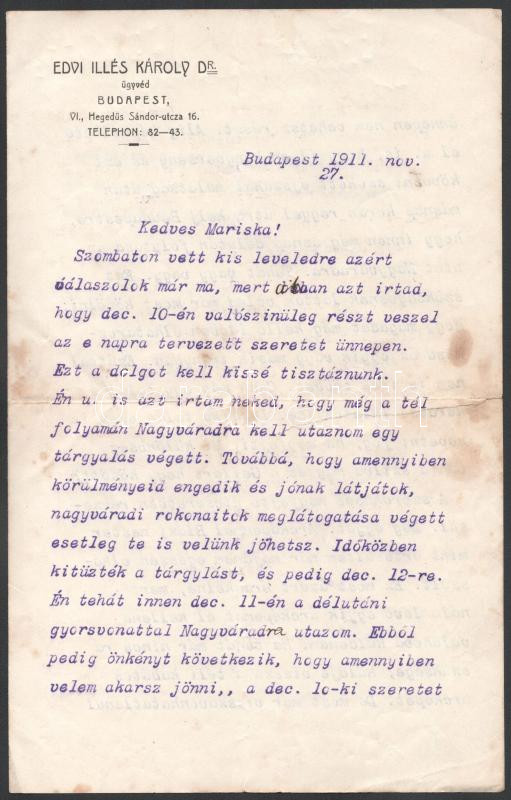 EDVI ILLÉS KÁROLY DR.
ügyvéd
BUDAPEST,
VI., Hegedűs Sándor-utcza 16.
TELEPHON: 82—43.
Budapest 1911. nov.
27.
Kedves Mariska!
Szombaton vett kis leveledre azért
válaszolok már ma, mert abban azt irtad,
hogy dec. 10-én valószinüleg részt veszel
az e napra tervezett szeretet ünnepen.
Ezt a dolgot kell kissé tisztáznunk.
Én u. is azt irtam neked, hogy még a tél
folyamán Nagyváradra kell utaznom egy
tárgyalás végett. Továbbá, hogy amennyiben
körülményeid engedik és jónak látjátok,
nagyváradi rokonaitok meglátogatása végett
esetleg te is velünk jöhetsz. Időközben
kitüzték a tárgylást, és pedig dec. 12-re.
Én tehát innen dec. 11-én a délutáni
gyorsvonattal Nagyváradra utazom. Ebből
pedig önkényt következik, hogy amennyiben
velem akarsz jönni,, a dec. 1o-ki szeretet